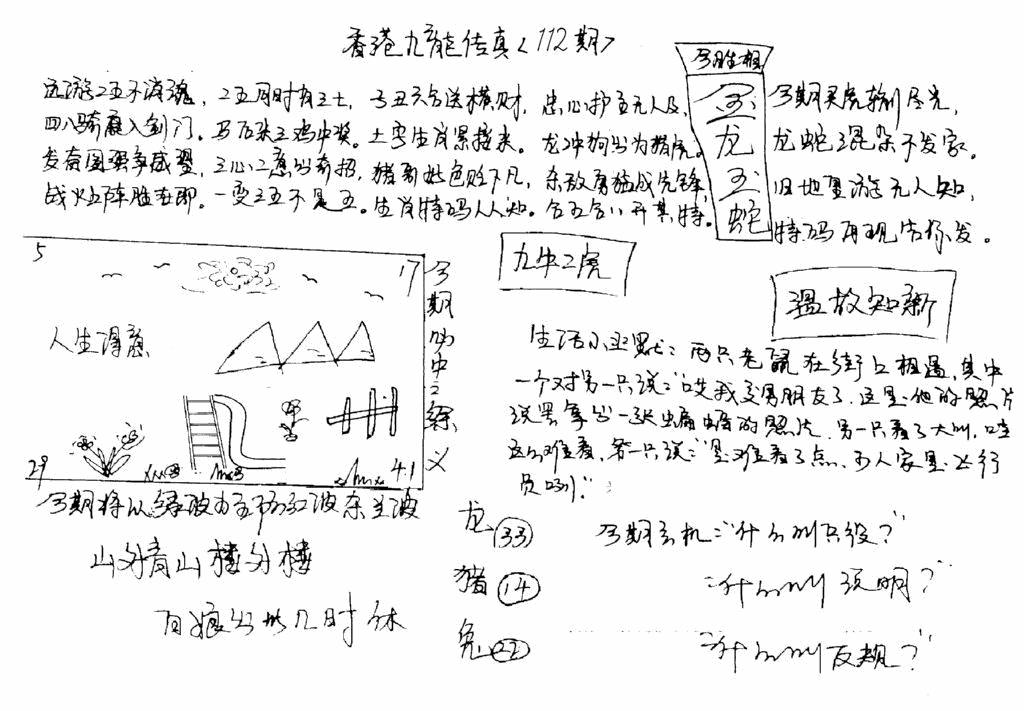 香港九龙传真<112期>
今期生相
玉
龙
玉
蛇
二五不消魂，二五同时有三七，子丑六合送横财，忠心护主无人及，
四八骑鹿入剑门。马后来三鸡中奖。土字生肖累接来。龙冲狗出为猪虎。
发奋图强争盛望，三心二意出奇招，猪哥好色贬下凡，杀敌勇猛战先锋，
战火五阵胜在即。一变三五不是五。生肖特码人人知。合五合八开其特。
今期买虎输尽光，
龙蛇混杂不发家。
旧地重游无人知，
特码再现告你发。
5
17
人生得意
29
41
今期四中二综义
九牛二虎
温故知新
生活小幽默：两只老鼠在街上相遇，其中
一个对另一只说：“哎我交男朋友了，这是他的照片
说罢拿出一张蝙蝠的照片，另一只看了大叫，哇
难看，第一只说：“是难看了点，可人家是飞行
员咧”
今期将以绿波为主防红波杂兰波
山外青山楼外楼
百娘出世几时休
龙 33
猪 14
兔 22
今期玄机：“什么叫只役？”
“什么叫说明？”
“什么叫反规？”